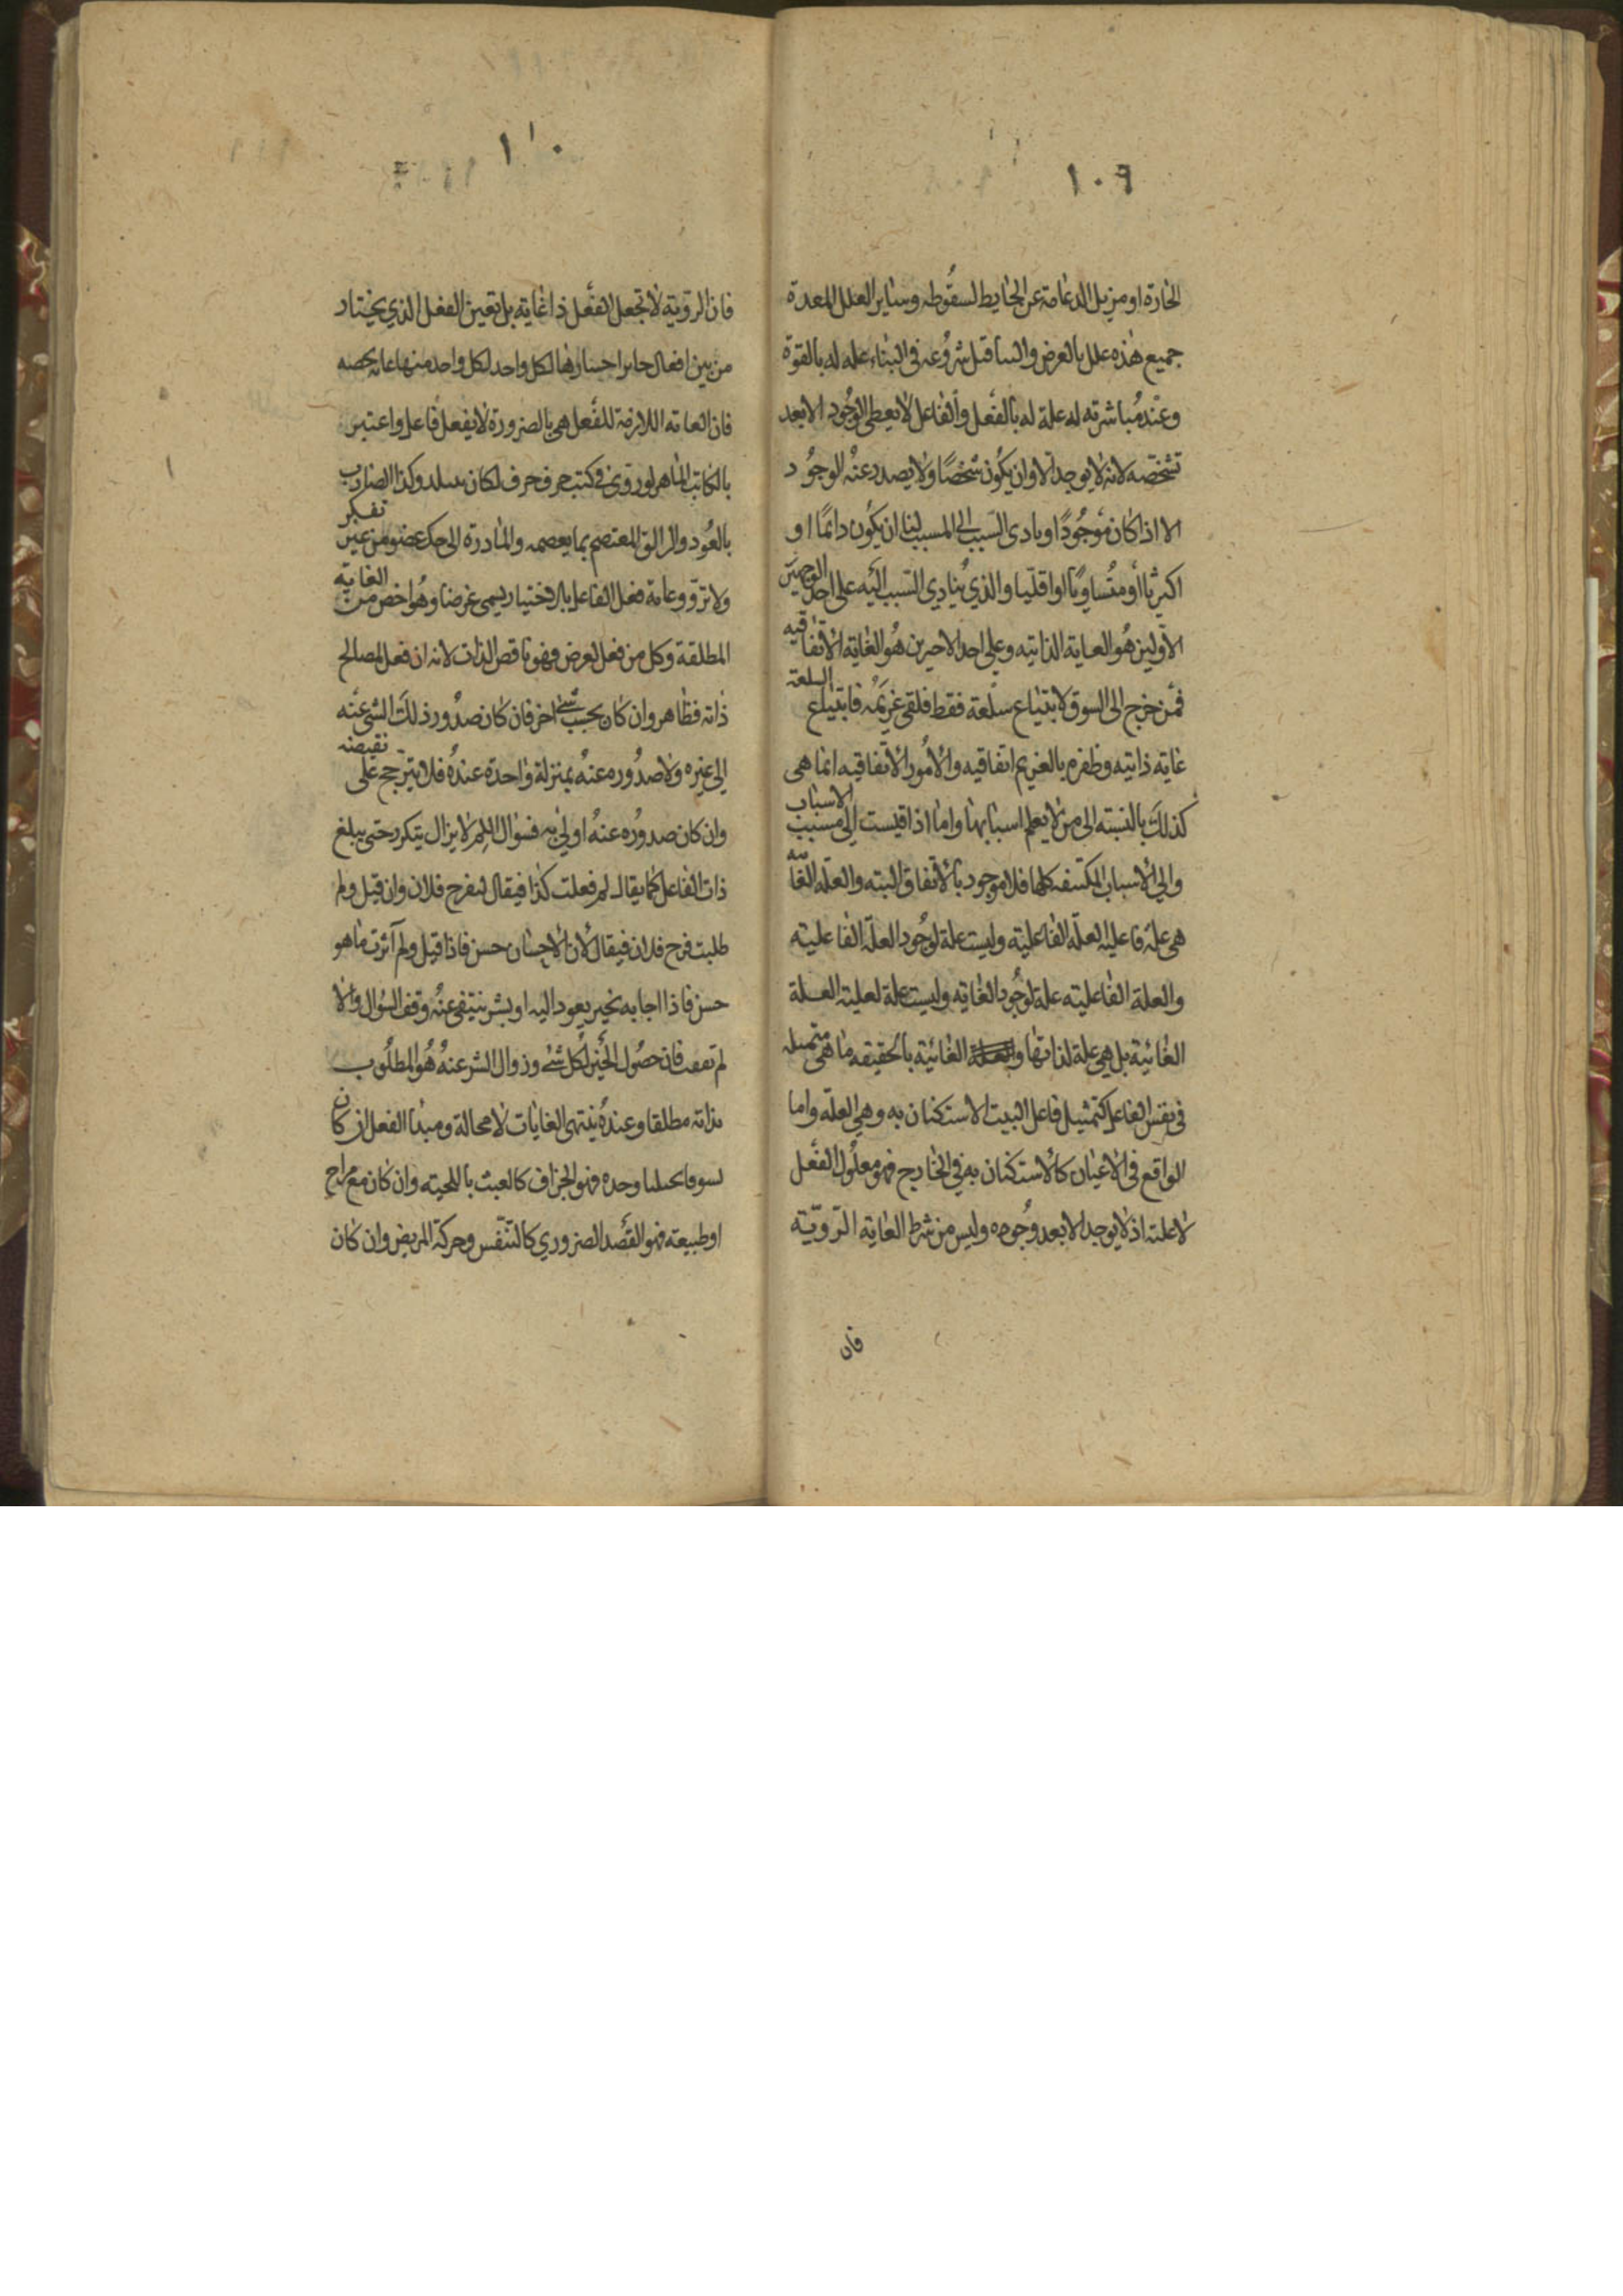 ١٠٩
الحارة او مزيل الدعامة عن الحايط لسقوطه وساير العلل المعدة
جميع هذه علل بالعرض والبنا قبل شروعه في البناء علة له بالقوة
وعند مباشرته له علة له بالفعل والفاعل لا يعطي الوجود الا بعد
تشخصه لانه لا يوجد الا وان يكون شخصا ولا يصدر عنه الوجود
الا اذا كان موجودا وبادى السبب الى المسبب اما ان يكون دائما او
اكثريا او متساويا او اقليا والذي ينادي السبب اليه على احد الوجهين
الاولين هو الغاية الذاتيه وعلى احد الاخيرين هو الغاية الاتفاقيه
فمن خرج الى السوق لابتياع سلعة فقط فلقى غريمه فابتياع السلعة
غاية ذاتيه وظفره بالغريم اتفاقيه والامور الاتفاقيه انما هى
كذلك بالنسبته الى من لا يعلم اسبابها واما اذا قيست الى مسبب الاسباب
والي الاسباب المكتنفه كلها فلا موجود بالاتفاق البته والعلة الغائيه
هى علة فاعليه لعلة الفاعلية وليست علة لوجود العلة الفاعليته
والعلة الفاعليته علة لوجود الغايه وليست علة لعلية العلة
الغائية بل هي علة لذاتها والعلة الغائية بالحقيقه ما هى متمثله
في نفس الفاعل كتمثيل فاعل البيت الاستكنان به وهي العلة واما
الواقع في الاعيان كالاستكنان به في الخارج فهو معلول الفعل
لا علته اذ لا يوجد الا بعد وجوده وليس من شرط الغاية الروية
فان
١١٠
فان الروية لا تجعل الفعل ذا غاية بل تعين الفعل الذي يختار
من بين افعال جايز اختيارها لكل واحد لكل واحد منها غاية تخصه
فان الغاية اللازمة للفعل هي بالضرورة لا بفعل فاعل واعتبر
بالكاتب الماهر لو روى في كتب حرف حرف لكان يتبلد وكذا الضارب
بالعود والزالق المعتصم بما يعصمه والمبادرة الى حك عضو من غير تفكر
ولا ترو وغاية فعل الفاعل بالاختيار يسمى غرضا وهو اخص من الغاية
المطلقة وكل من فعل لغرض فهو ناقص الذات لانه ان فعل لمصالح
ذاته فظاهر وان كان بحسب شئ اخر فان كان صدور ذلك الشئ عنه
الى غيره ولا صدوره عنه بمنزلة واحدة عنده فلا يترجح على نقيضه
وان كان صدوره عنه اولي به فسؤال اللم لا يزال يتكرر حتى يبلغ
ذات الفاعل كما يقال لم فعلت كذا فيقال ليفرح فلان وان قيل ولم
طلبت فرح فلان فيقال لان الاحسان حسن فاذا قيل ولم آثرت ما هو
حسن فاذا اجابه بخير يعود اليه او بشر ينتفى عنه وقف السؤال والا
لم تقف فان حصول الخير لكل شئ وزوال الشر عنه هو المطلوب
بذاته مطلقا وعنده ينتهى الغايات لا محالة ومبدا الفعل ان كان
تسوقا تخيليا وحده فهو الجزاف كالعبث باللحيته وان كان مع مزاج
او طبيعته فهو القصد الضروري كالتنفس وحركة المريض وان كان